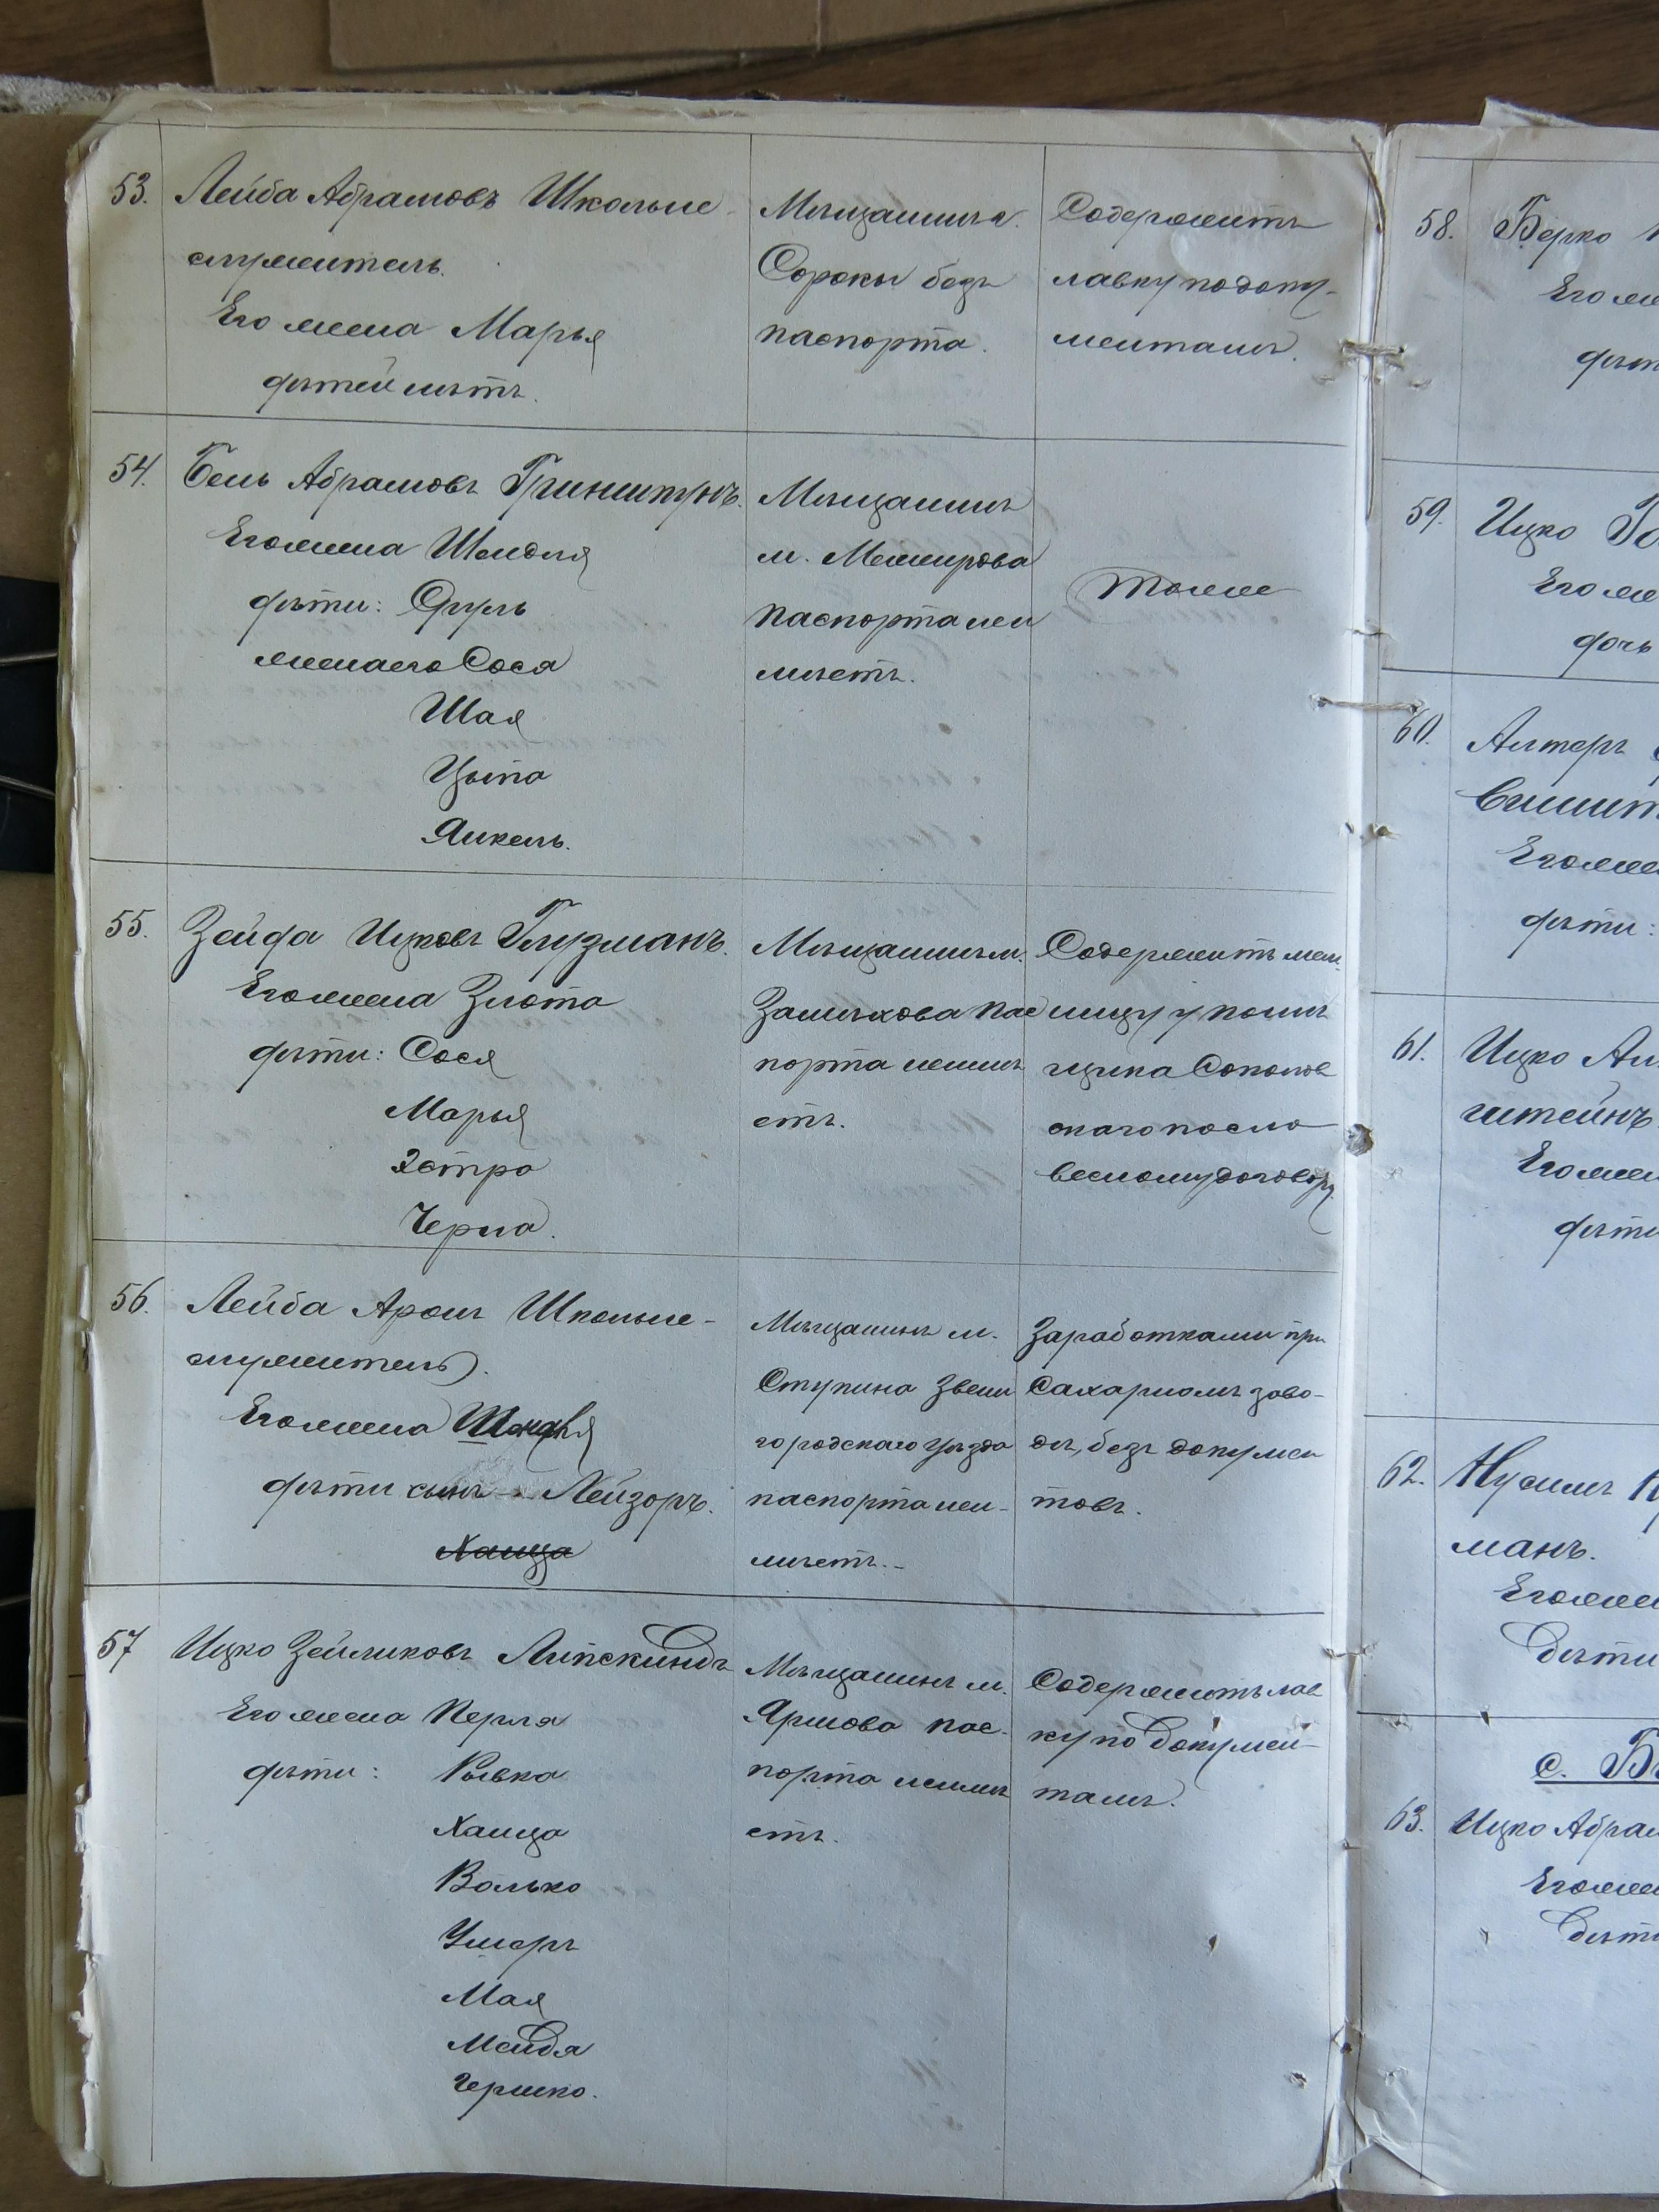 53.
Лейба Абрамовъ Школьне-
служитель.
Его жена Марья
дѣтей нѣтъ.
Мѣщанинъ
Сороки безъ
паспорта.
Содержитъ
лавку по доку-
ментамъ.
54.
Бень Абрамовъ Гринштнъ.
Его жена Шендля
дѣти: Сруль
жена его Сося
Шая
Цыпа
Янкель.
Мѣщанинъ
м. Немирова
паспорта неи
мѣетъ.
тоже
55.
Зейда Ицковъ Глузманъ.
Его жена Злота
дѣти: Сося
Марья
Эстра
Черна.
Мѣщанинъ м.
Замѣхова пас
порта неимѣ
етъ.
Содержитъ мел
ницу у помѣ
щика Соколов
скаго по сло
весному договору
56.
Лейба Аронъ Школьне-
служитель.
Его жена
дѣти сынъ - Лейзоръ.
Ханца
Мѣщанинъ м.
Ступина Звени
городскаго уѣзда
паспорта неи-
мѣетъ.-
Заработками при
Сахарномъ заво-
дѣ, безъ докумен
товъ.
57
Ицко Зейликовъ Липскиндъ
Его жена Перля
дѣти: Рывка
Ханца
Волько
Умеръ
Мая
Мендя
Гершко.
Мѣщанинъ м.
Ярмова пас-
порта неимѣ
етъ.
Содержитъ лав
ку по докумен-
тамъ.
58.
Берко
Его же
дѣт
59.
Ицко Го
Его же
дочь
60.
Алтеръ
Его же
дѣти:
61.
Ицко Ал
штейнъ.
Его жен
дѣти
62.
Нусимъ
манъ.
Его жен
дѣти
с. Бѣ
63.
Ицко Абрам
Его жен
дѣти